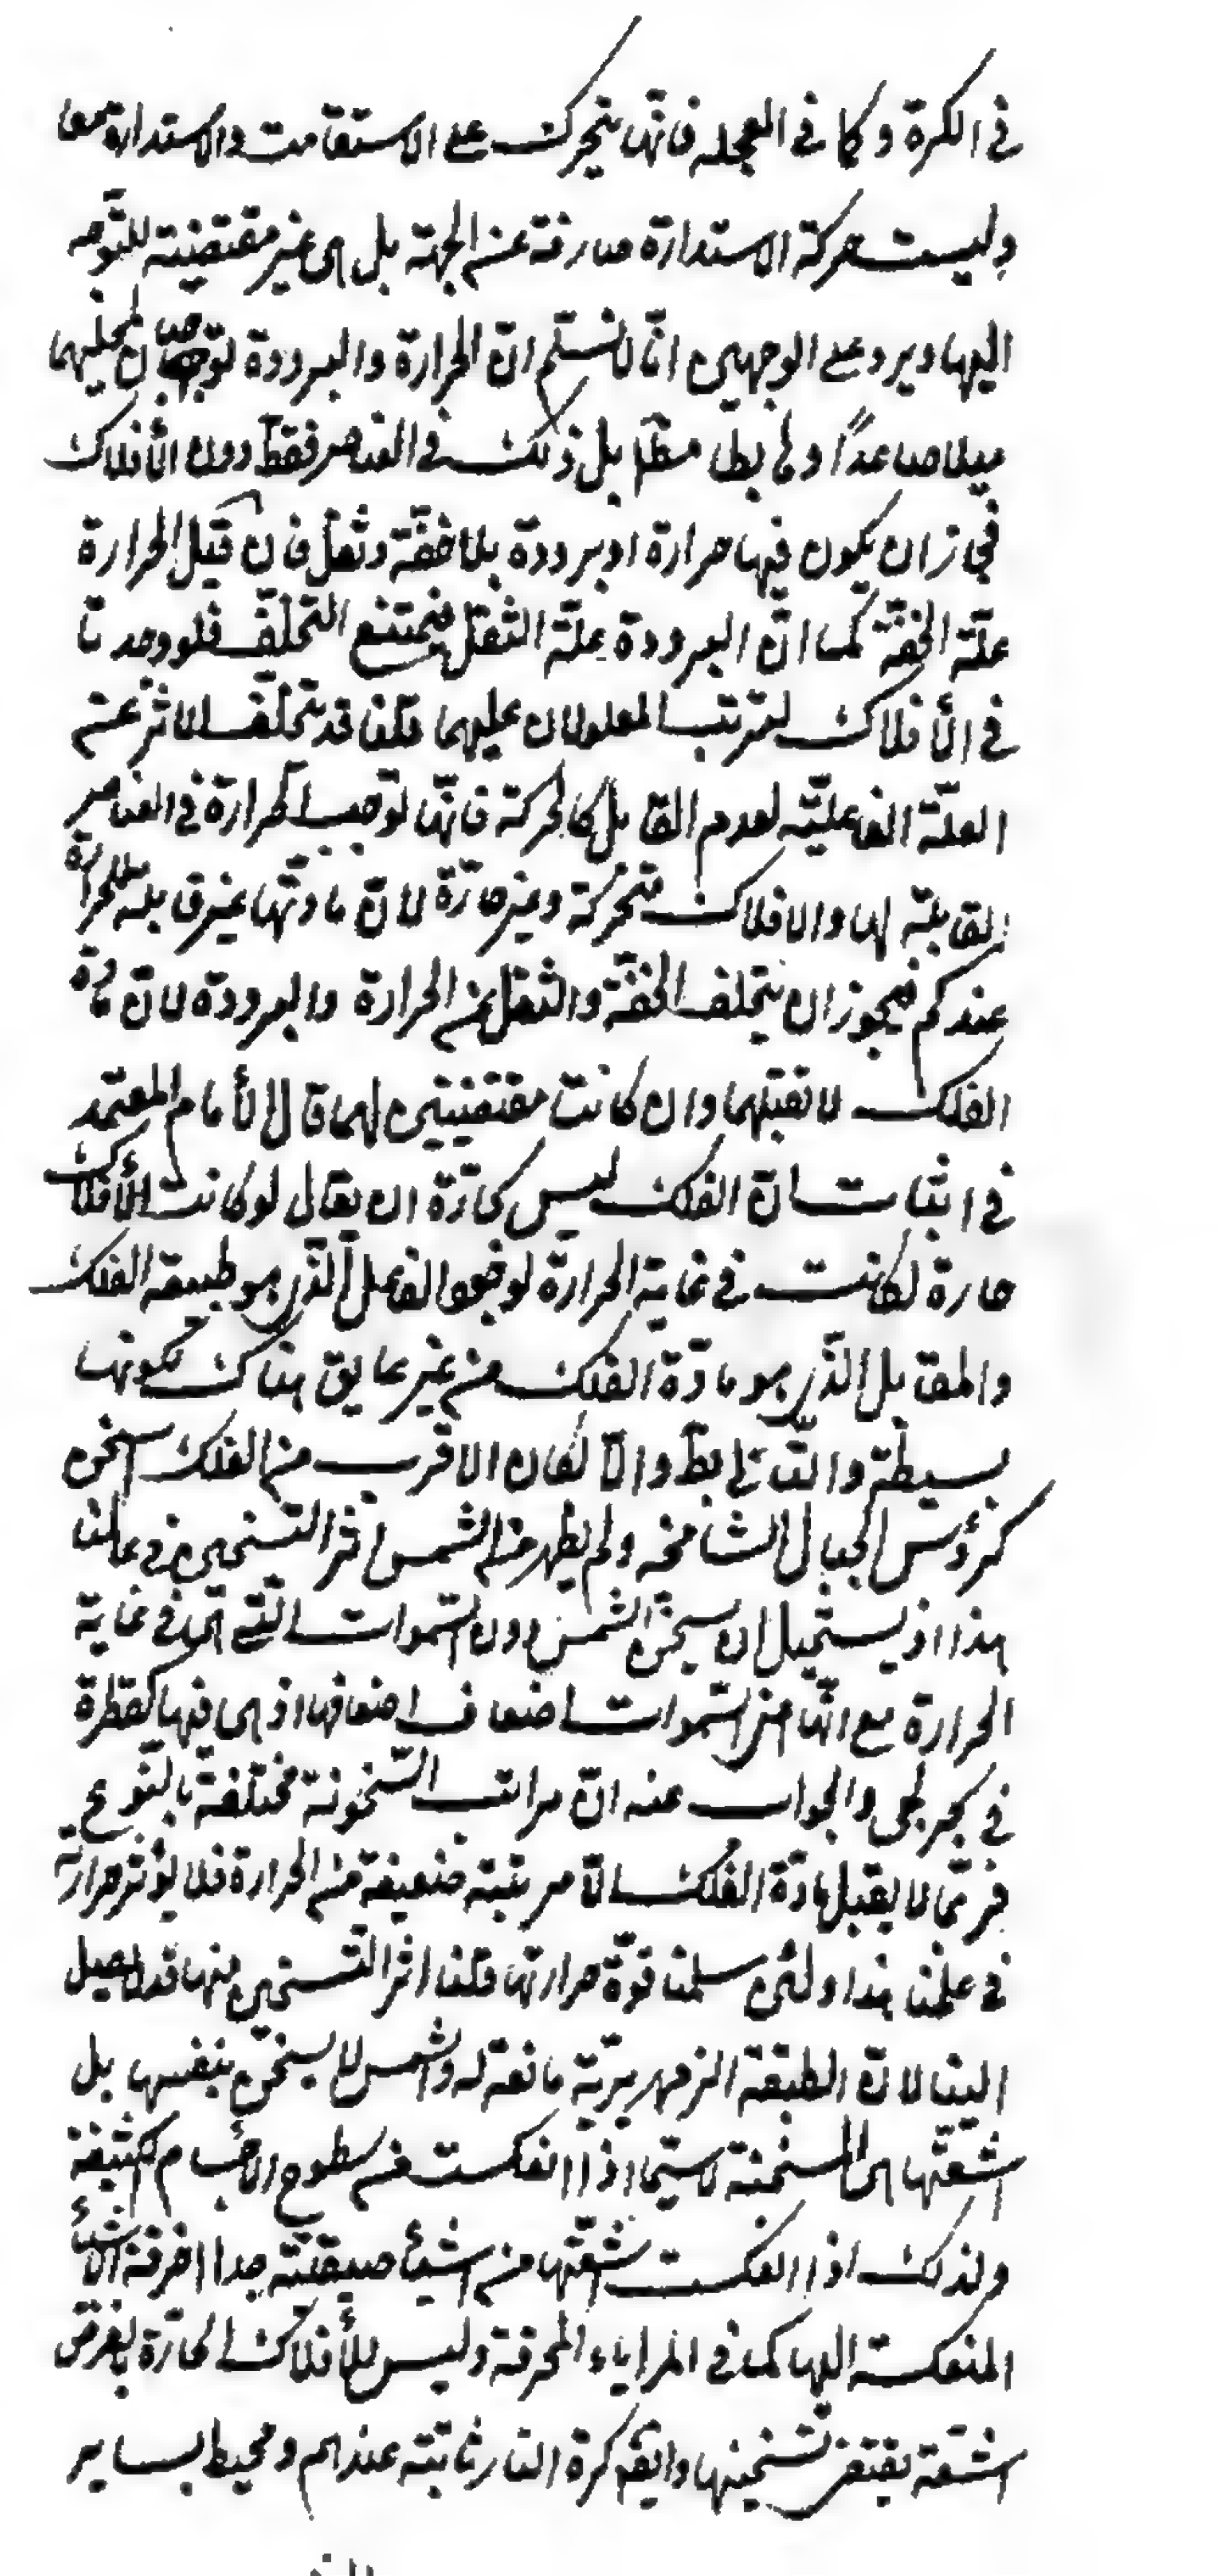 في الكرة وكما في العجلة فانها يتحرك على الاستقامت والاستدارة معا
وليست حركة الاستدارة صارفة عن الجهة بل هي غير مقتضية للتوجه
اليها ويرد على الوجهين انا لا نسلم ان الحرارة والبرودة توجبان لمحليهما
ميلا صاعدا وهابطا مطلقا بل ذلك في العناصر فقط دون الأفلاك
فيجز ان يكون فيها حرارة او برودة بلا خفة وثقل فان قيل الحرارة
علة الخفة كما ان البرودة علة الثقل فيمتنع التخلف فلو وجدتا
في الأفلاك لترتب المعلولان عليهما قلنا قد يتخلف الاثر عن
العلة الفاعلية لعدم القابل كالحركة فانها توجب الحرارة في العناصر
القابلة لها والافلاك متحركة وغير حارة لان مادتها غير قابلة للحرارة
عندكم فيجوز ان يتخلف الخفة والثقل عن الحرارة والبرودة لان مادة
الفلك لا تقبلهما وان كانت مقتضيتين لهما قال الأمام المعتمد
في اثبات ان الفلك ليس بحارة ان يقال لو كانت الأفلاك
حارة لكانت في غاية الحرارة لوجود الفاعل الذي هو طبيعة الفلك
والمقابل الذي هو مادة الفلك من غير عايق هناك لكونها
بسيطة والتالي بط والا لكان الاقرب من الفلك اسخن
كرؤس الجبال الشامخه ولم يظهر من الشمس اثر التسخين في عالمنا
هذا اذ يستحيل ان يسخن الشمس دون السموات التي هي في غاية
الحرارة مع انها من السموات اضعاف اضعافها اذ هي فيها كقطرة
في بحر لجي والجواب عنه ان مراتب السخونة مختلفة بالنوع
فربما لا يقبل مادة الفلك الا مرتبة ضعيفة من الحرارة فلا يؤثر حرارته
في علمنا هذا ولئن سلمنا قوة حرارتها قلنا اثر التسخين منها قد لا يصل
الينا لان الطبقة الزمهريرية مانعة له والشمس لا يسخن بنفسها بل
اشعتها هي المسخنة لا سيما اذا انعكست من سطوح الاجسام الكثيفة
ولذلك اذا انعكست اشعتها من اشيأ صيقلية جدا احرقت الأشيأ
المنعكسة اليها كما في المراياء المحرقة وليس للأفلاك الحارة بالفرض
اشعة يقتضي تسخينها وايض كرة النار ثابتة عندهم ومحيط بساير